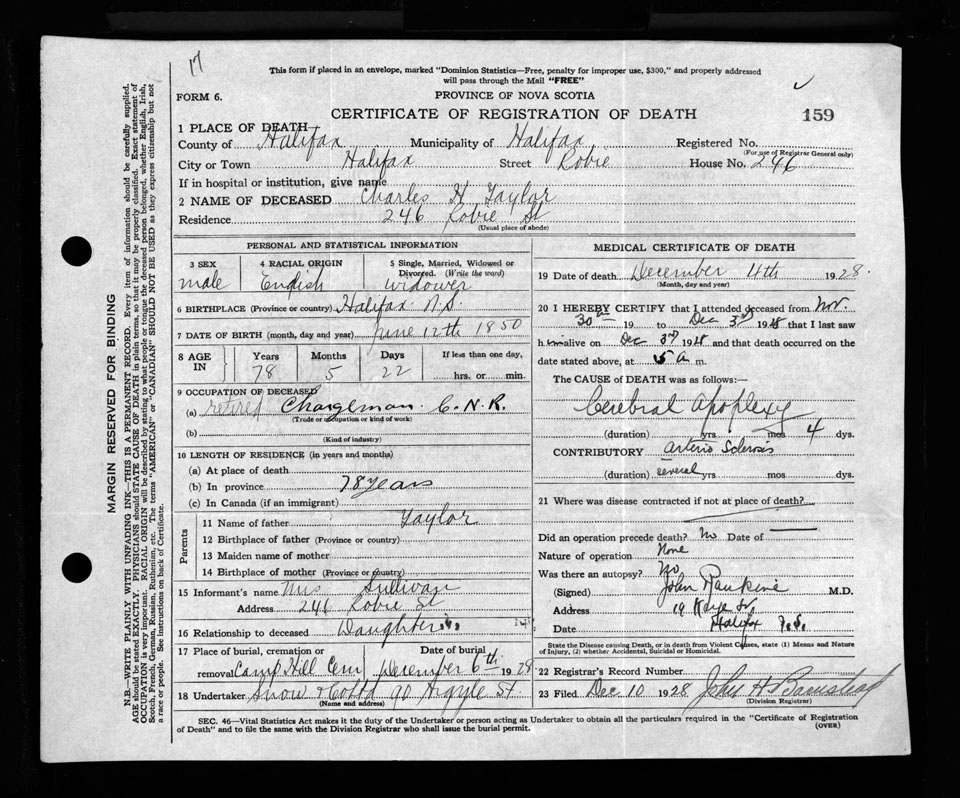 17
This form if placed in an envelope, marked "Dominion Statistics—Free, penalty for improper use, $300," and properly addressed
will pass through the Mail "FREE"
FORM 6.
PROVINCE OF NOVA SCOTIA
CERTIFICATE OF REGISTRATION OF DEATH
159
1 PLACE OF DEATH
County of Halifax Municipality of Halifax Registered No.
(For use of Registrar General only)
City or Town Halifax Street Robie House No. 246
If in hospital or institution, give name
2 NAME OF DECEASED Charles H Taylor
Residence 246 Robie St
(Usual place of abode)
PERSONAL AND STATISTICAL INFORMATION
3 SEX male
4 RACIAL ORIGIN English
5 Single, Married, Widowed or Divorced. (Write the word) widower
6 BIRTHPLACE (Province or country) Halifax N.S.
7 DATE OF BIRTH (month, day and year) June 12th 1850
8 AGE IN Years 78 Months 5 Days 22 If less than one day, hrs. or min.
9 OCCUPATION OF DECEASED
(a) retired Chargeman C.N.R.
(Trade or occupation or kind of work)
(b)
(Kind of industry)
10 LENGTH OF RESIDENCE (in years and months)
(a) At place of death
(b) In province 78 years
(c) In Canada (if an immigrant)
Parents
11 Name of father Taylor
12 Birthplace of father (Province or country)
13 Maiden name of mother
14 Birthplace of mother (Province or country)
15 Informant's name Mrs Sullivan
Address 246 Robie St
16 Relationship to deceased Daughter
17 Place of burial, cremation or removal Camp Hill Cem
Date of burial December 6th 1928
18 Undertaker Snow & Co Ltd 90 Argyle St.
(Name and address)
MEDICAL CERTIFICATE OF DEATH
19 Date of death December 4th 1928.
(Month, day and year)
20 I HEREBY CERTIFY that I attended deceased from Nov.
30th 19 to Dec 3rd 1928 that I last saw
him alive on Dec 3rd 1928 and that death occurred on the
date stated above, at 5 a m.
The CAUSE OF DEATH was as follows:—
Cerebral Apoplexy
(duration) yrs mos 4 dys.
CONTRIBUTORY arterio Sclerosis
(duration) several yrs mos dys.
21 Where was disease contracted if not at place of death?
Did an operation precede death? No Date of
Nature of operation None
Was there an autopsy? No
(Signed) John Rankine M.D.
Address 19 Kaye St.
Halifax N.S.
Date
State the Disease causing Death, or in death from Violent Causes, state (1) Means and Nature
of Injury, (2) whether Accidental, Suicidal or Homicidal.
22 Registrar's Record Number
23 Filed Dec 10 1928 John H Barnstead
(Division Registrar)
SEC. 46—Vital Statistics Act makes it the duty of the Undertaker or person acting as Undertaker to obtain all the particulars required in the "Certificate of Registration
of Death" and to file the same with the Division Registrar who shall issue the burial permit.
(OVER)
MARGIN RESERVED FOR BINDING
N.B.—WRITE PLAINLY WITH UNFADING INK—THIS IS A PERMANENT RECORD. Every item of information should be carefully supplied.
AGE should be stated EXACTLY. PHYSICIANS should STATE CAUSE OF DEATH in plain terms, so that it may be properly classified. Exact statement of
OCCUPATION is very important. RACIAL ORIGIN will be described by stating to what people or tongue the deceased person belonged, whether English, Irish,
Scotch, French, German, Russian, Ruthenian, etc. The terms "AMERICAN" or "CANADIAN" SHOULD NOT BE USED as they express citizenship but not
a race or people. See instructions on back of Certificate.